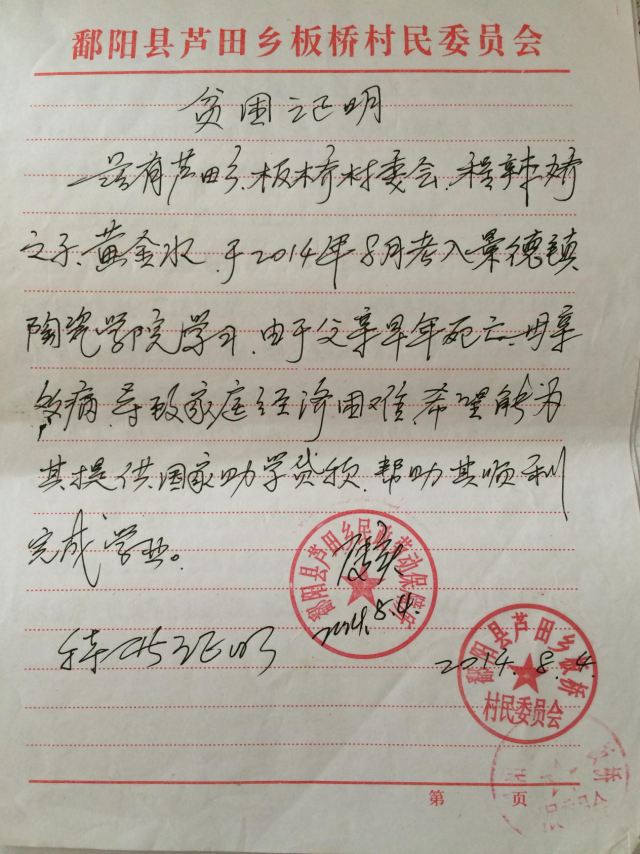 鄱阳县芦田乡板桥村民委员会
贫困证明
兹有芦田乡板桥村委会程辣娇
之子黄金水,于2014年8月考入景德镇
陶瓷学院学习,由于父亲早年死亡,母亲
多病,导致家庭经济困难,希望能为
其提供国家助学贷款,帮助其顺利
完成学业。
属实
2014.8.4.
鄱阳县芦田乡民政劳动保障所
特此证明
2014.8.4.
鄱阳县芦田乡板桥
村民委员会
第 页